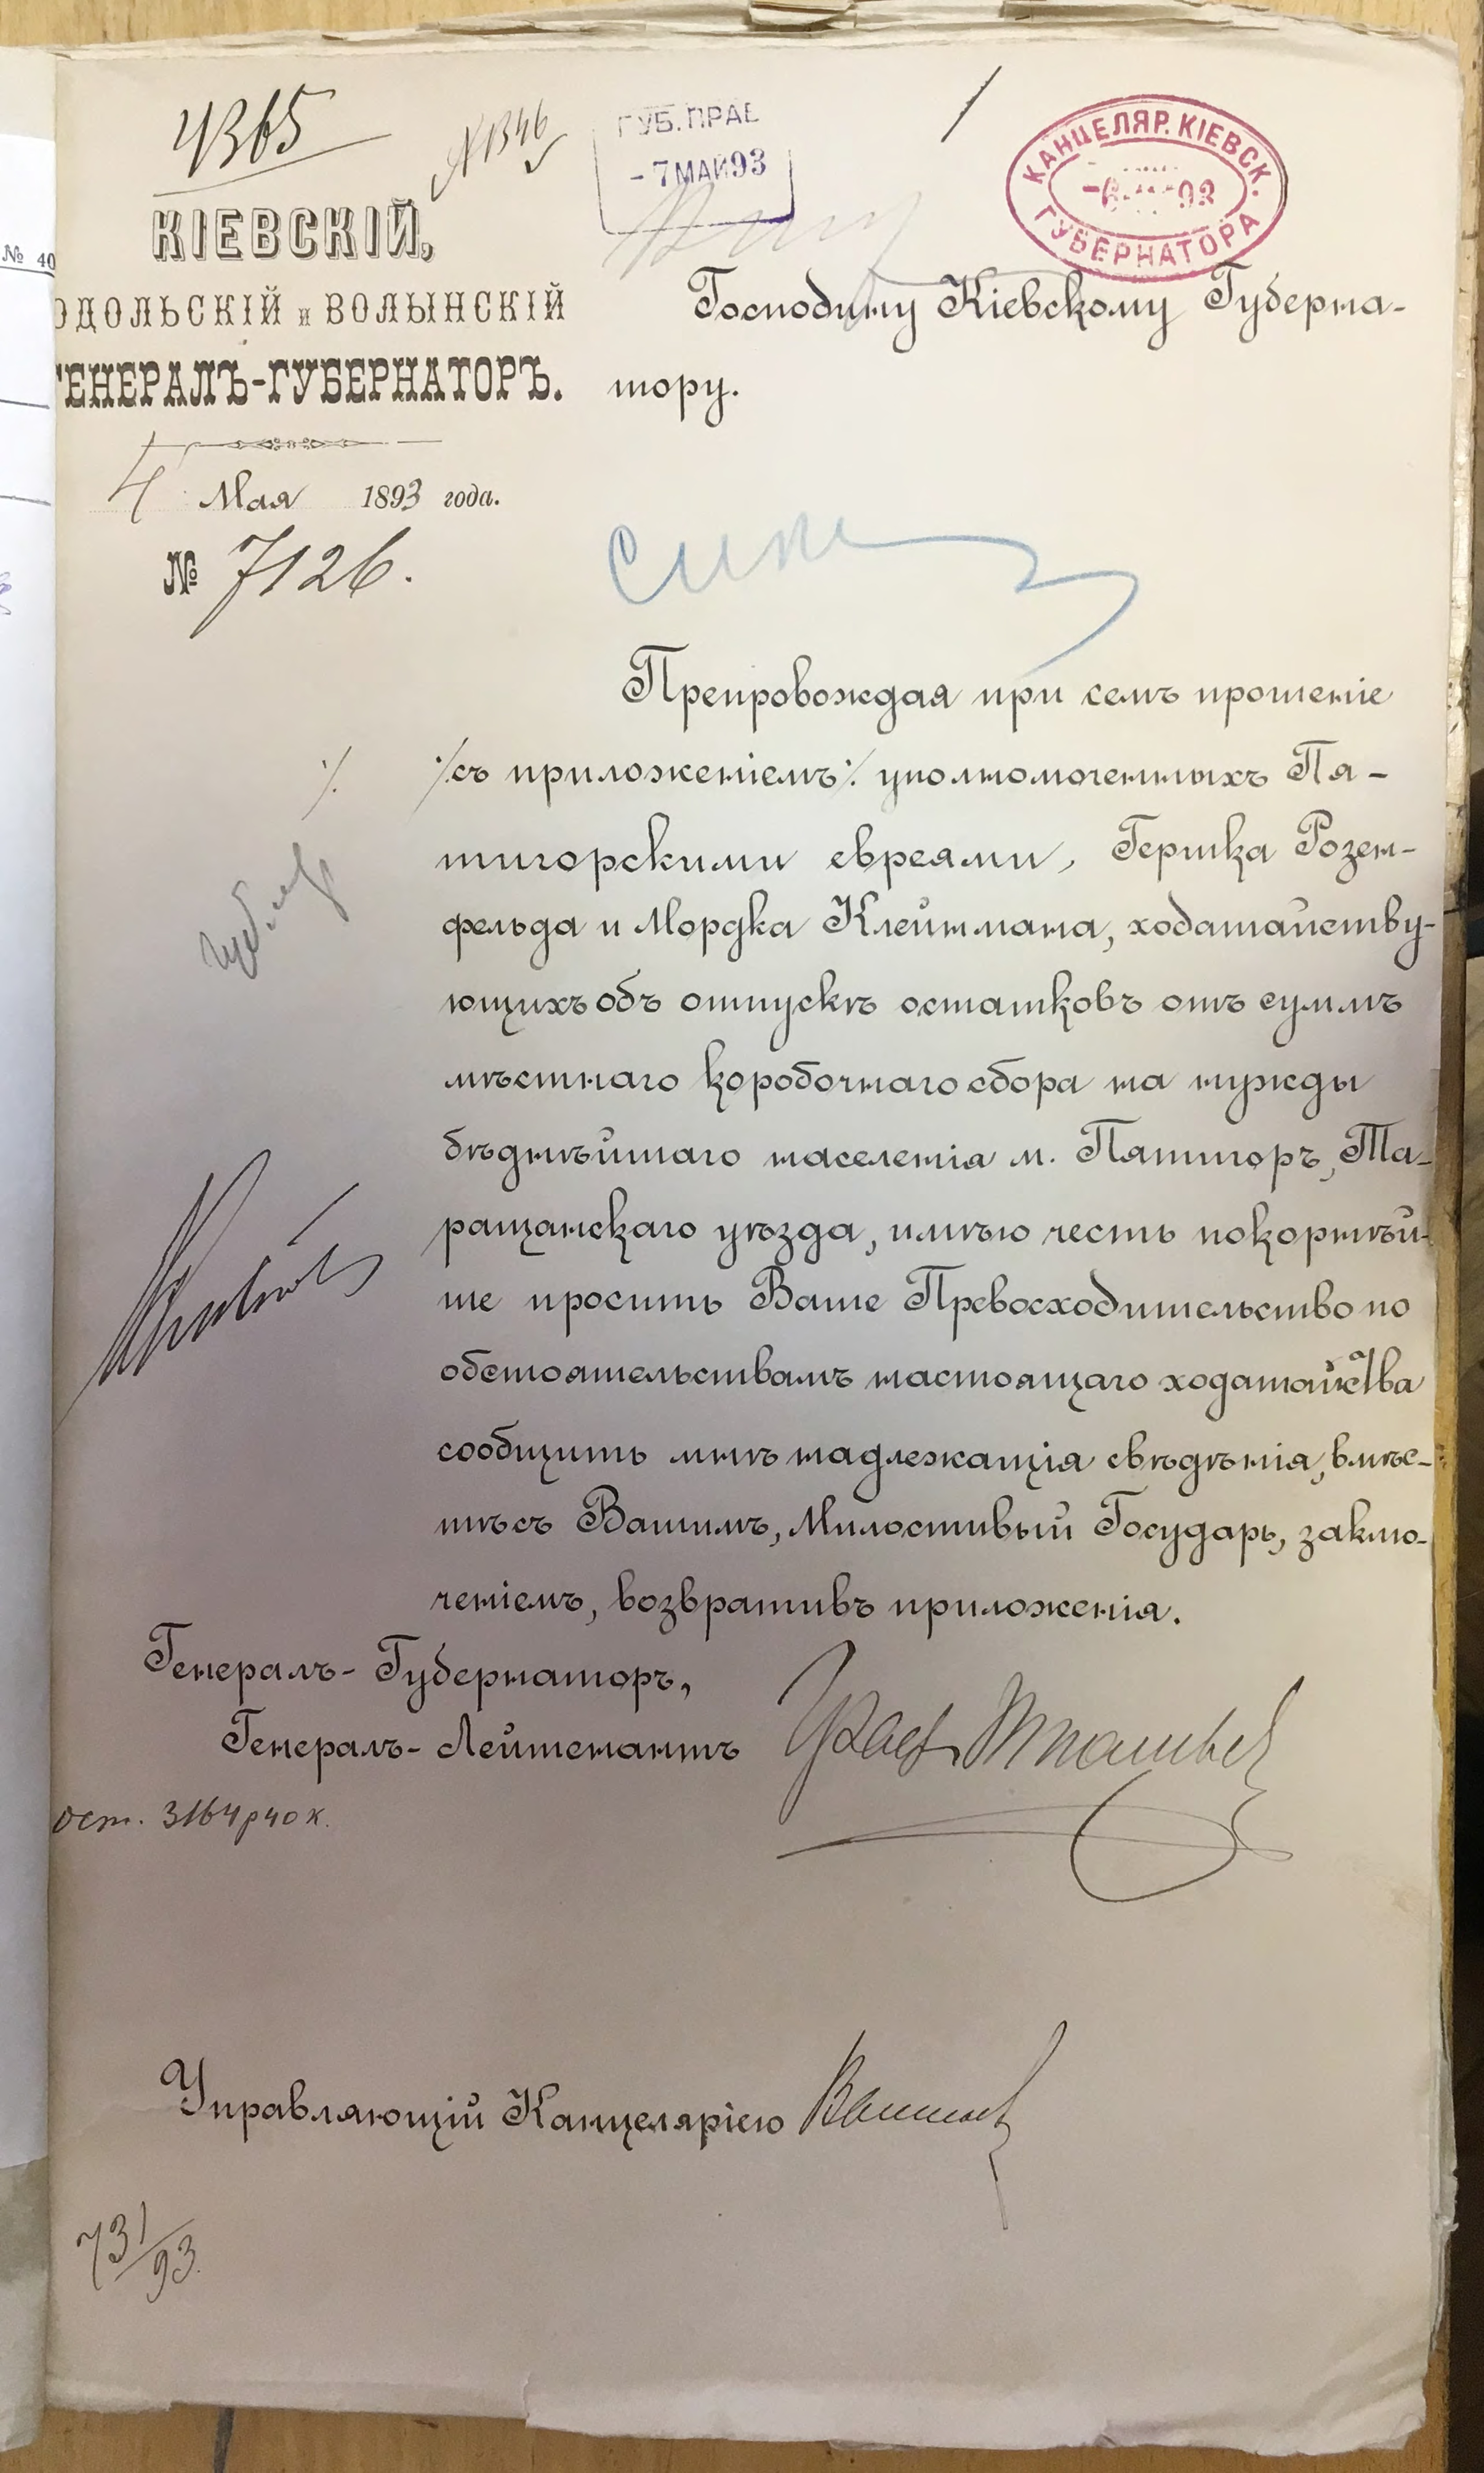 4365
№ 1346
ГУБ. ПРАВ
- 7 МАЙ 93
КАНЦЕЛЯР. КІЕВСК.
ГУБЕРНАТОРА
КІЕВСКІЙ,
ОДОЛЬСКІЙ и ВОЛЫНСКІЙ
ГЕНЕРАЛЪ-ГУБЕРНАТОРЪ.
4 Мая 1893 года.
№ 7126.
№ 40
Господину Кіевскому Губерна-
тору.
Препровождая при семъ прошеніе
·/. ·/.съ приложеніемъ·/. уполномоченныхъ Пя-
тигорскими евреями, Гершка Розен-
фельда и Мордка Клейнмана, ходатайству-
ющихъ объ отпускѣ остатковъ отъ суммъ
мѣстнаго коробочнаго сбора на нужды
бѣднѣйшаго населенія м. Пятигоръ, Та-
ращанскаго уѣзда, имѣю честь покорнѣй-
ше просить Ваше Превосходительство по
обстоятельствамъ настоящаго ходатайства
сообщить мнѣ надлежащія свѣдѣнія, вмѣс-
тѣ съ Вашимъ, Милостивый Государь, заклю-
ченіемъ, возвративъ приложенія.
Генералъ-Губернаторъ,
Генералъ-Лейтенантъ Графъ Игнатьев
ост. 3164 р 40 к.
Управляющій Канцеляріею
731/93.